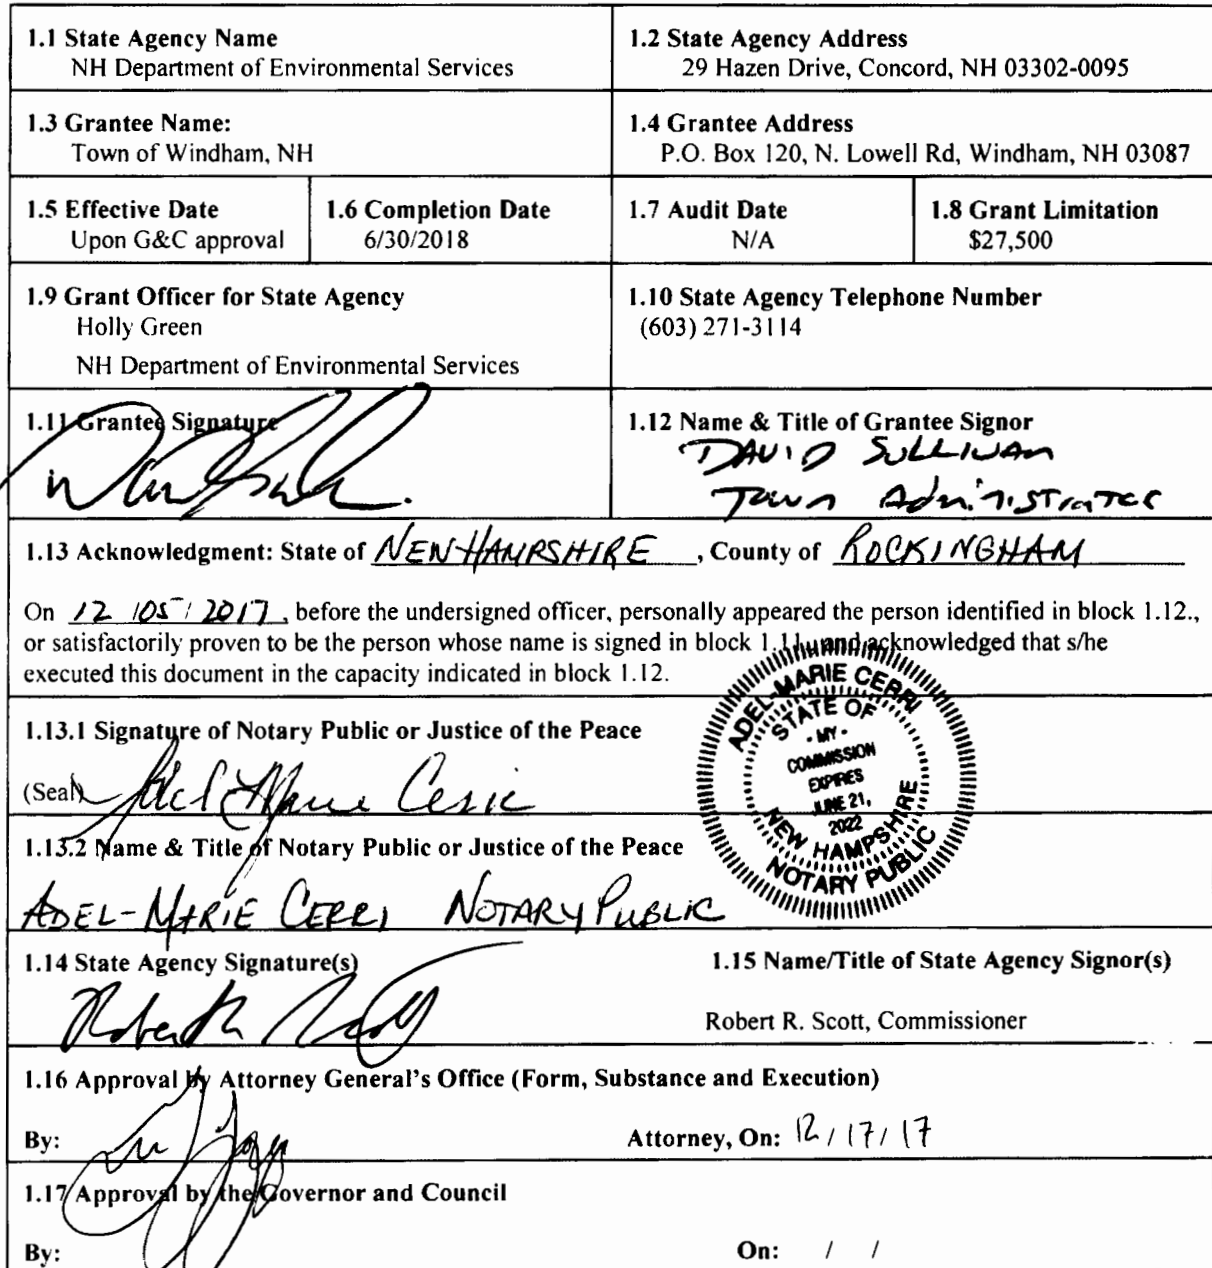 1.1 State Agency Name
NH Department of Environmental Services
1.2 State Agency Address
29 Hazen Drive, Concord, NH 03302-0095
1.3 Grantee Name:
Town of Windham, NH
1.4 Grantee Address
P.O. Box 120, N. Lowell Rd, Windham, NH 03087
1.5 Effective Date
Upon G&C approval
1.6 Completion Date
6/30/2018
1.7 Audit Date
N/A
1.8 Grant Limitation
$27,500
1.9 Grant Officer for State Agency
Holly Green
NH Department of Environmental Services
1.10 State Agency Telephone Number
(603) 271-3114
1.11 Grantee Signature
1.12 Name & Title of Grantee Signor
DAVID SULLIVAN
Town Administrator
1.13 Acknowledgment: State of NEW HAMPSHIRE, County of ROCKINGHAM
On 12/05/2017, before the undersigned officer, personally appeared the person identified in block 1.12.,
or satisfactorily proven to be the person whose name is signed in block 1.11., and acknowledged that s/he
executed this document in the capacity indicated in block 1.12.
ADEL-MARIE CERRI
STATE OF
- MY -
COMMISSION
EXPIRES
JUNE 21,
2022
NEW HAMPSHIRE
NOTARY PUBLIC
1.13.1 Signature of Notary Public or Justice of the Peace
(Seal)
1.13.2 Name & Title of Notary Public or Justice of the Peace
ADEL-MARIE CERRI NOTARY PUBLIC
1.14 State Agency Signature(s)
1.15 Name/Title of State Agency Signor(s)
Robert R. Scott, Commissioner
1.16 Approval by Attorney General's Office (Form, Substance and Execution)
By:
Attorney, On: 12/17/17
1.17 Approval by the Governor and Council
By:
On: / /